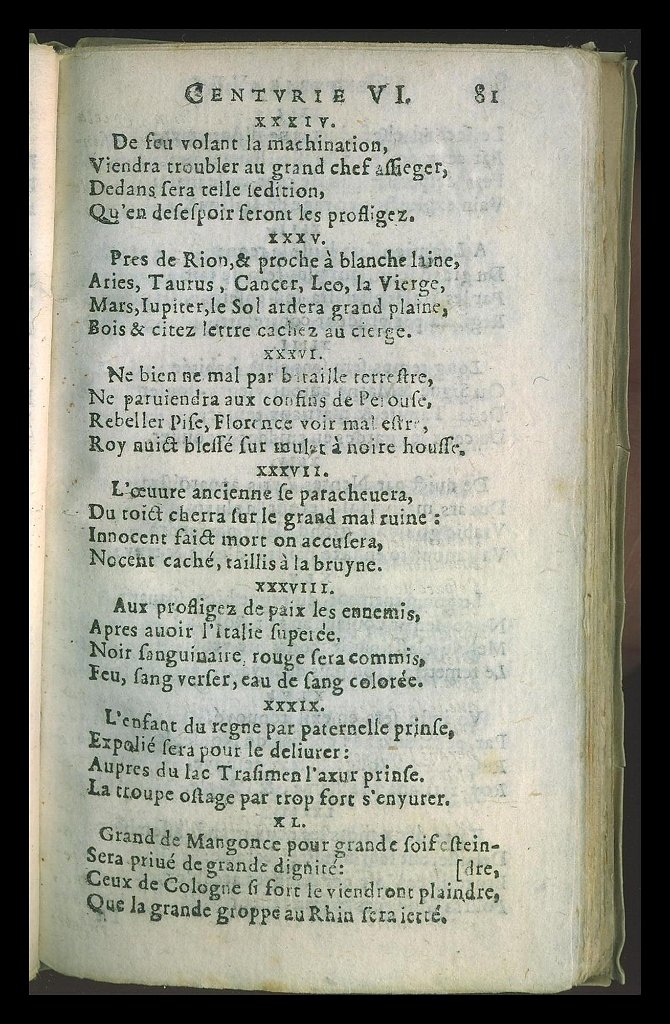 CENTVRIE VI. 81
XXXIV.
De feu volant la machination,
Viendra troubler au grand chef aſſieger,
Dedans ſera telle ſedition,
Qu'en deſeſpoir ſeront les profligez.
XXXV.
Pres de Rion,& proche à blanche laine,
Aries, Taurus, Cancer, Leo, la Vierge,
Mars,Iupiter,le Sol ardera grand plaine,
Bois & citez lettre cachez au cierge.
XXXVI.
Ne bien ne mal par bataille terreſtre,
Ne paruiendra aux confins de Perouſe,
Rebeller Piſe, Florence voir mal eſtre,
Roy nuict bleſſé ſur mulet à noire houſſe.
XXXVII.
L'œuure ancienne ſe paracheuera,
Du toict cherra ſur le grand mal ruine:
Innocent faict mort on accuſera,
Nocent caché, taillis à la bruyne.
XXXVIII.
Aux profligez de paix les ennemis,
Apres auoir l'Italie ſuperée,
Noir ſanguinaire, rouge ſera commis,
Feu, ſang verſer, eau de ſang colorée.
XXXIX.
L'enfant du regne par paternelle prinſe,
Expolié ſera pour le deliurer:
Aupres du lac Traſimen l'axur prinſe.
La troupe oſtage par trop fort s'enyurer.
XL.
Grand de Mangonce pour grande ſoif eſtein-
Sera priué de grande dignité: [dre,
Ceux de Cologne ſi fort le viendront plaindre,
Que la grande groppe au Rhin ſera ietté.